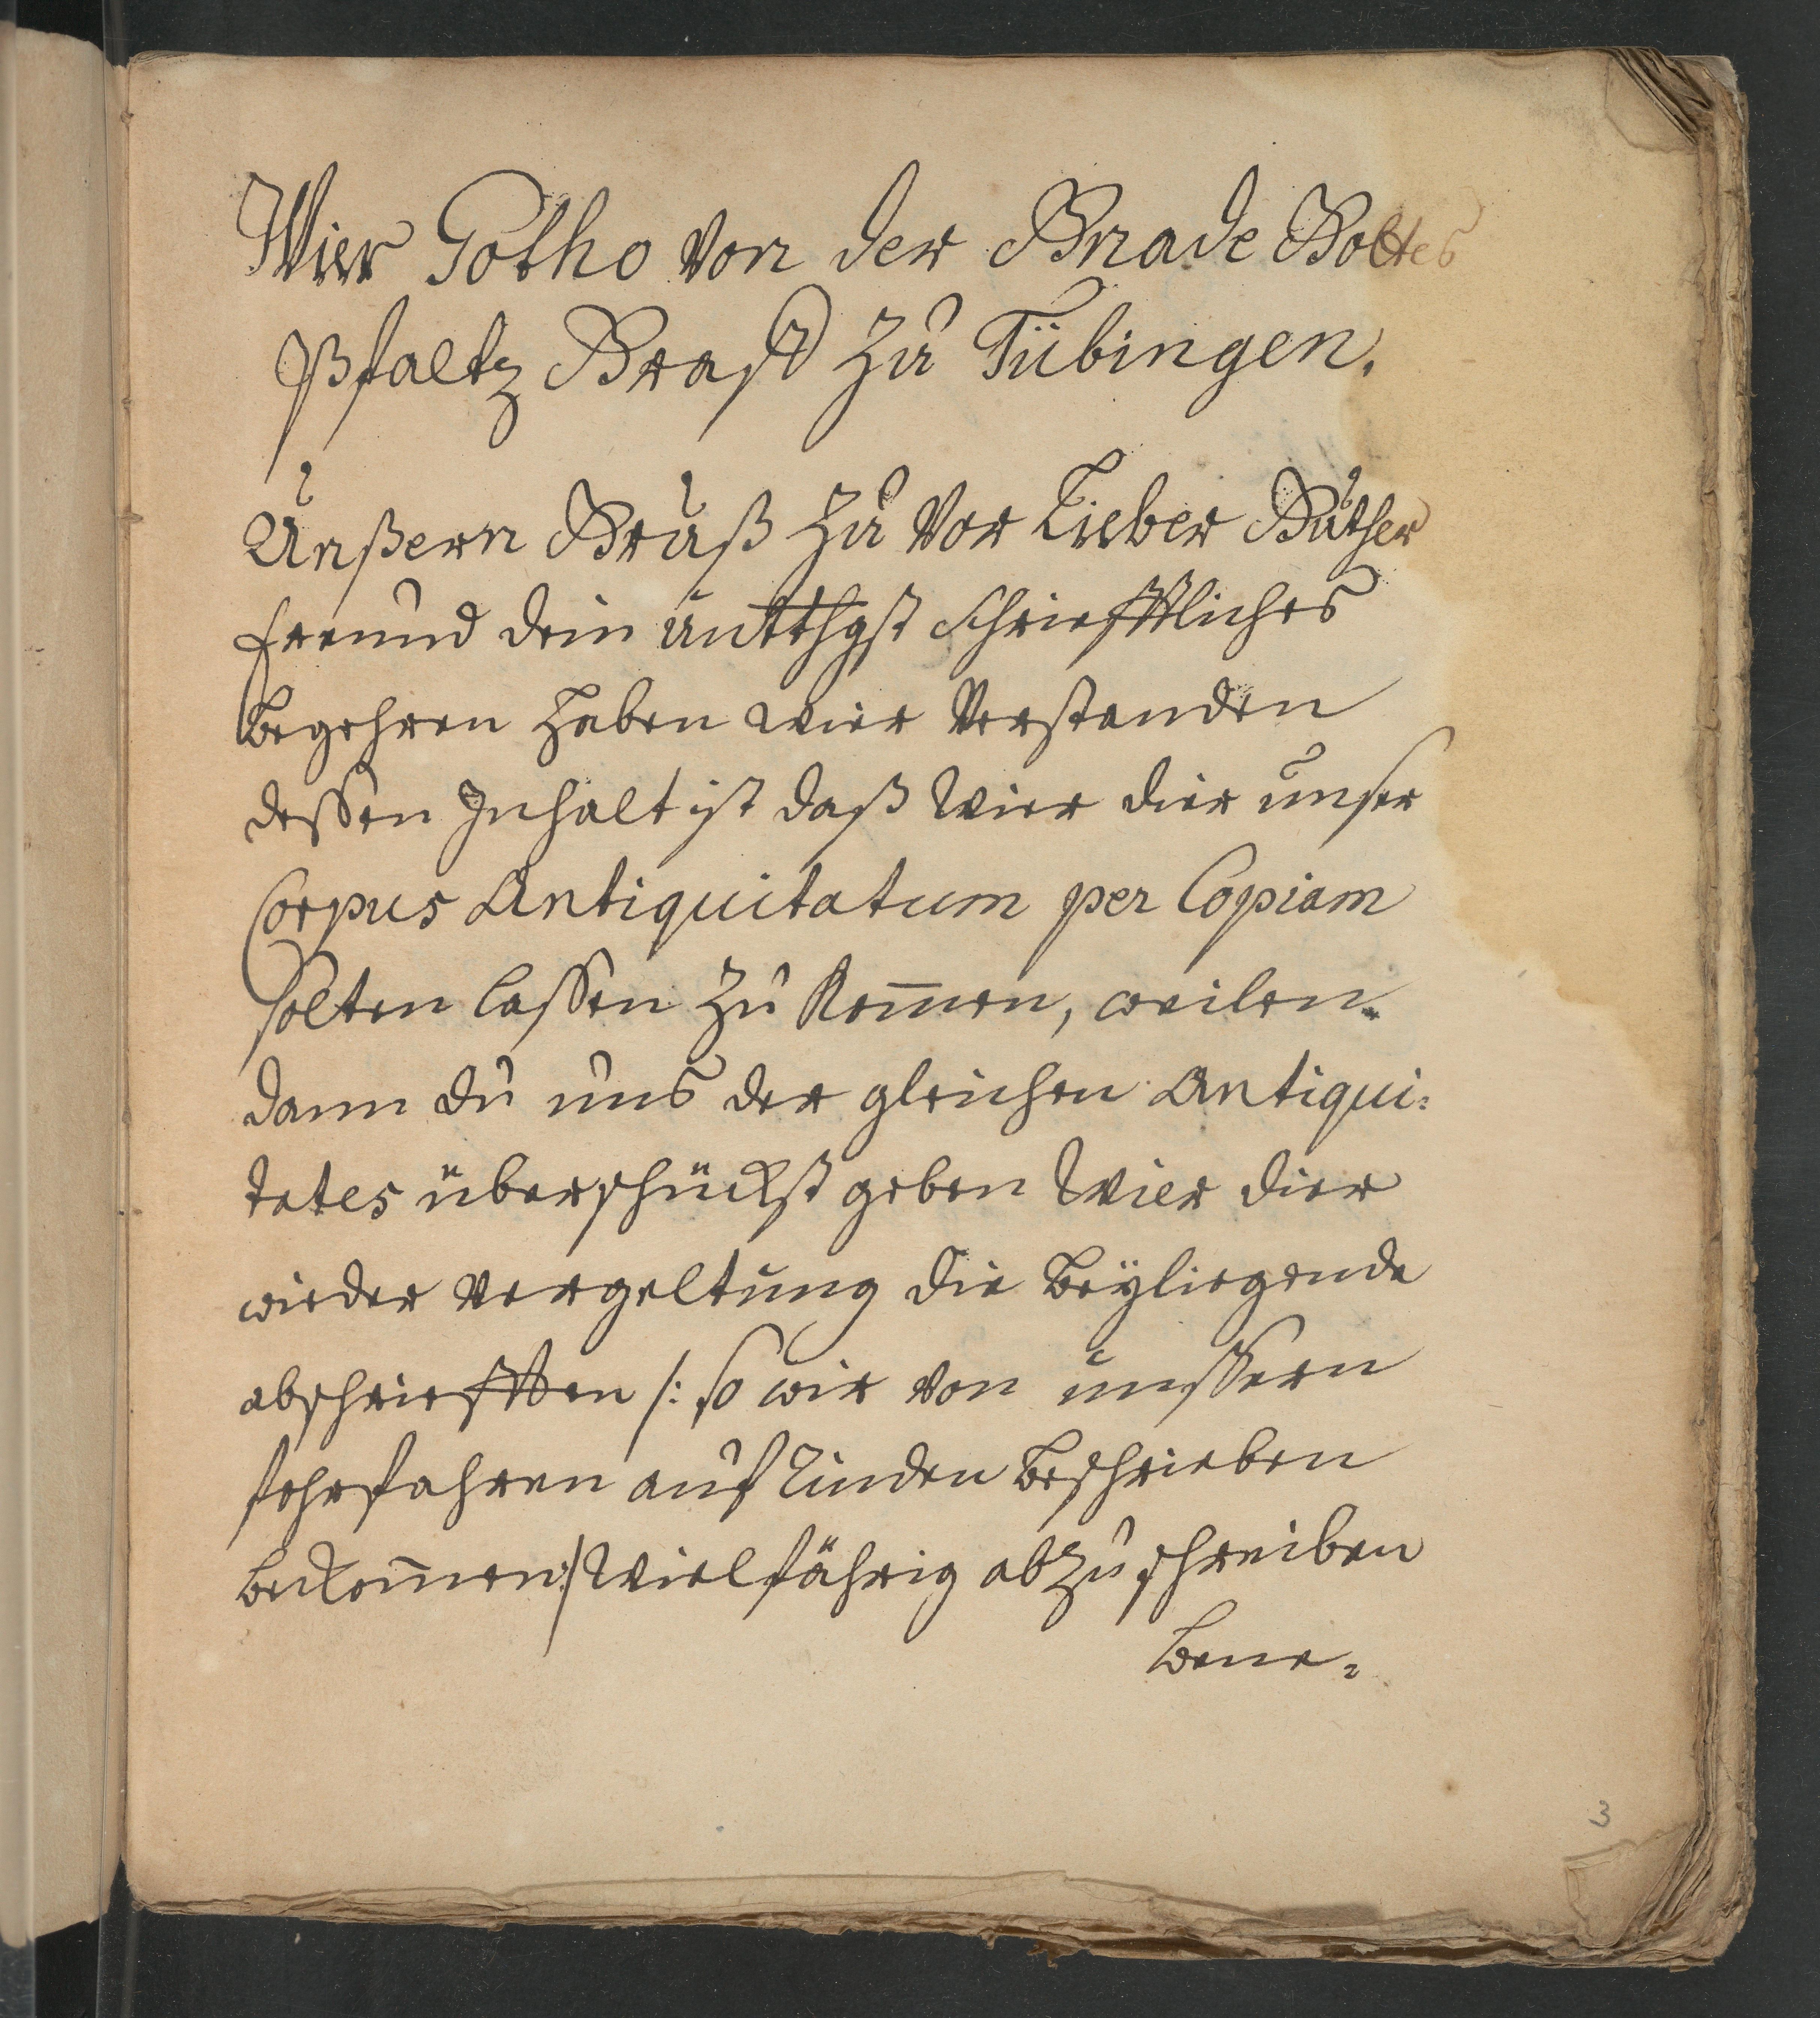 Wier Gotho von der Gnade Gottes
Pfaltz Graff zu Tübingen.
Unßern Gruß zu vor Lieber Guther
freund dein untthgst schriefftliches
Begehren haben wier Verstanden
dessen Inhalt ist daß Wier dier unser
Corpus Antiquitatum per Copiam
solten lassen zu Kom̄en, weilen
dann du uns der gleichen Antiqui:
tates überschückst geben Wier dier
wieder Vergeltung die beÿliegende
abschriefften /: so wir von unssern
fohrfahren auf Rinden beschrieben
beckom̄en :/ Wielfährig abzuschreiben
Bene:
3